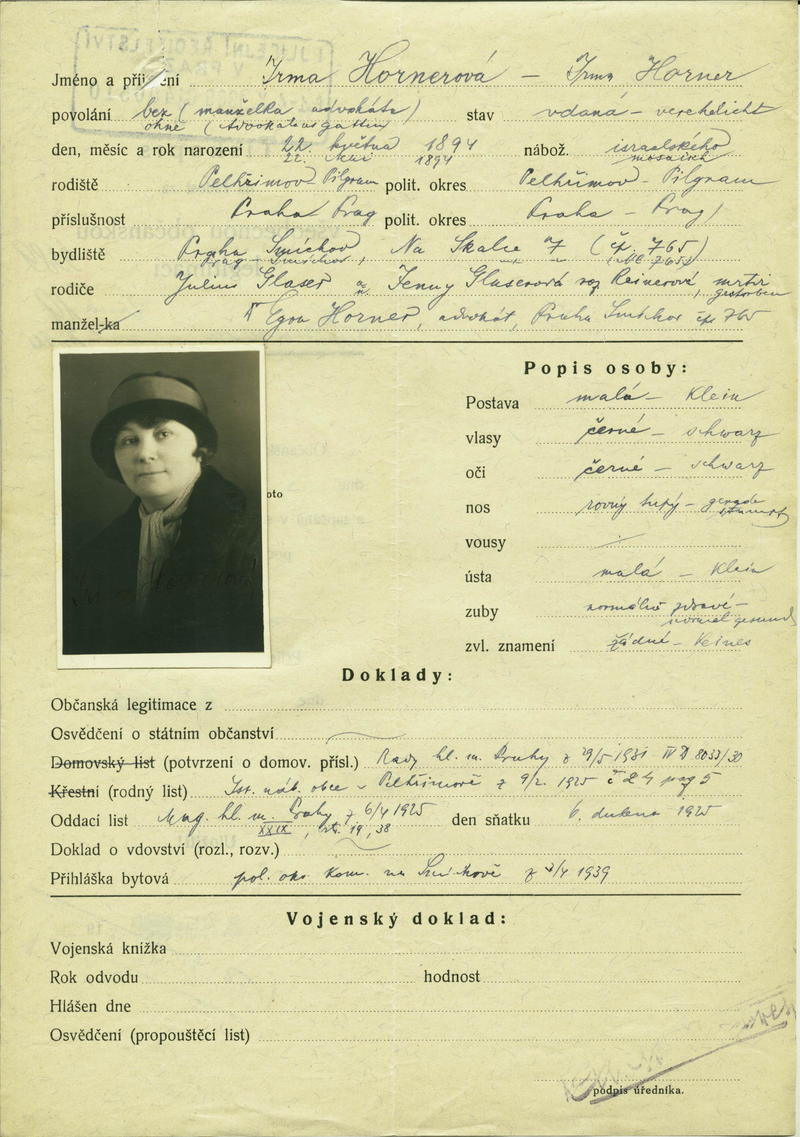 Jméno a příjmení Irma Hornerová – Irma Horner
povolání bez (manželka advokáta) stav vdaná – verehelicht
ohne (Advokatensgattin)
den, měsíc a rok narození 22. května 1894 nábož. israelského
22. Mai 1894 mosaisch
rodiště Pelhřimov – Pilgram polit. okres Pelhřimov – Pilgram
příslušnost Praha / Prag polit. okres Praha – Prag
bydliště Praha Smíchov, Na Skalce 7 (čp. 765)
Prag – Smíchov
rodiče Julius Glaser a Jenny Glaserová roz. Reinerová, mrtvi
gestorben
manžel-ka Egon Horner, advokát, Praha Smíchov čp. 765
oto
Popis osoby:
Postava malá – Klein
vlasy černé – schwarz
oči černé – schwarz
nos rovný tupý – gerade
stumpf
vousy
ústa malá – Klein
zuby normální zdravé –
normal gesund
zvl. znamení žádné – Keines
Doklady:
Občanská legitimace z
Osvědčení o státním občanství
Domovský list (potvrzení o domov. přísl.) Rady hl. m. Prahy z 29/5 1931 IV D 8033/30
Křestní (rodný list) Isr. náb. obce v Pelhřimově z 9/2. 1925 č 24 pag 5
Oddací list Mag. hl. m. Prahy z 6/4 1925 den sňatku 6. dubna 1925
XXIX, str. 19, 38
Doklad o vdovství (rozl., rozv.)
Přihláška bytová pol. okr. kom. na Smíchově z 4 1939
Vojenský doklad:
Vojenská knížka
Rok odvodu hodnost
Hlášen dne
Osvědčení (propouštěcí list)
podpis úředníka.